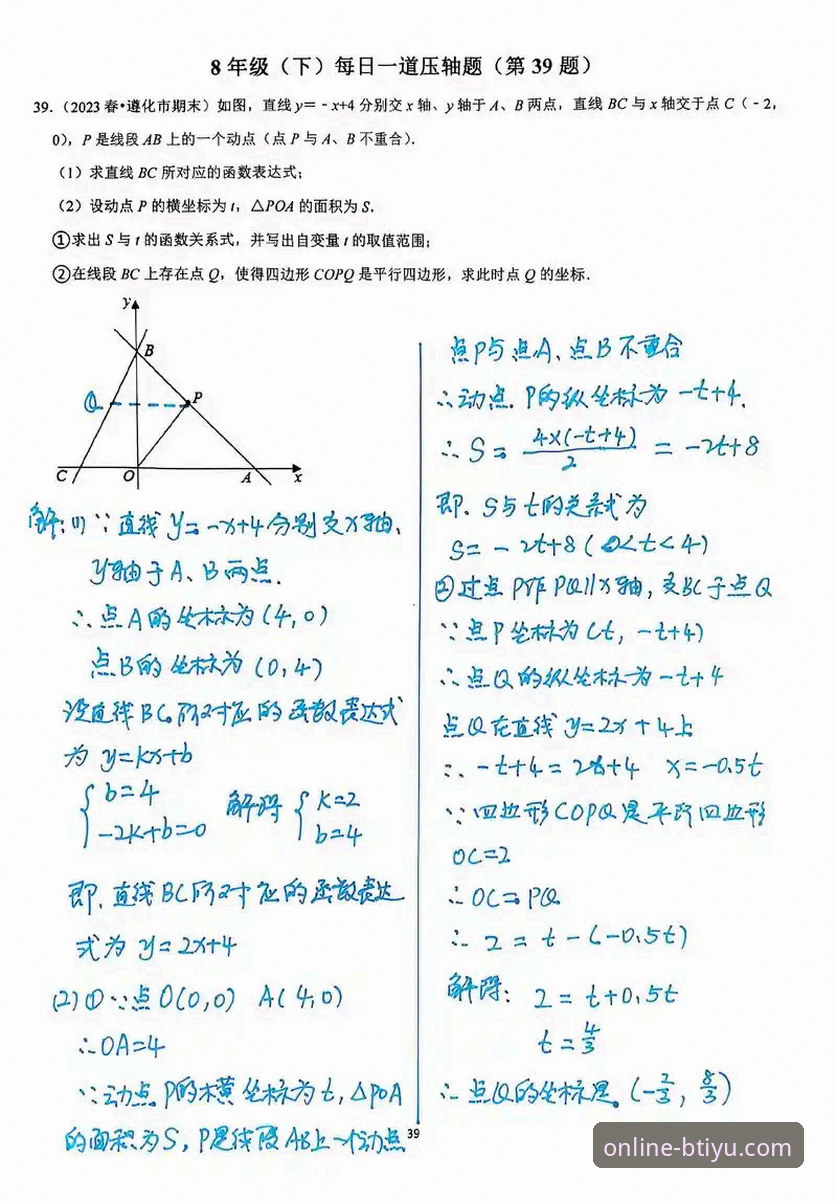 8 年级（下）每日一道压轴题（第 39 题）
39.（2023 春•遵化市期末）如图，直线 y＝﹣x+4 分别交 x 轴、y 轴于 A、B 两点，直线 BC 与 x 轴交于点 C（﹣2，
0），P 是线段 AB 上的一个动点（点 P 与 A、B 不重合）.
（1）求直线 BC 所对应的函数表达式；
（2）设动点 P 的横坐标为 t，△POA 的面积为 S.
①求出 S 与 t 的函数关系式，并写出自变量 t 的取值范围；
②在线段 BC 上存在点 Q，使得四边形 COPQ 是平行四边形，求此时点 Q 的坐标.
y
B
Q
P
C
O
A
x
解：(1) ∵ 直线 y=-x+4 分别交 x 轴、
y轴于 A、B 两点.
∴点 A 的坐标为 (4,0)
点B的坐标为 (0,4)
设直线 BC 所对应的函数表达式
为 y=kx+b
{ b=4
-2k+b=0
解得 { k=2
b=4
即，直线 BC 所对应的函数表达
式为 y=2x+4
(2) ① ∵点 O(0,0) A(4,0)
∴OA=4
∵动点 P的横坐标为 t, △POA
的面积为 S, P是线段 AB上一个动点
点P与点A、点B不重合
∴动点 P的纵坐标为 -t+4.
∴ S = 4×(-t+4)/2 = -2t+8
即，S与t的关系式为
S= -2t+8 (0<t<4)
②过点 P作 PQ∥x轴，交BC于点Q
∵点P坐标为 (t, -t+4)
∴点Q的纵坐标为 -t+4
点Q在直线 y=2x+4上
∴ -t+4=2x+4 x=-0.5t
∵四边形COPQ是平行四边形
OC=2
∴OC=PQ
∴ 2 = t-(-0.5t)
解得： 2 = t+0.5t
t = 4/3
∴点Q的坐标是 (-2/3, 8/3)
39
online-btiyu.com